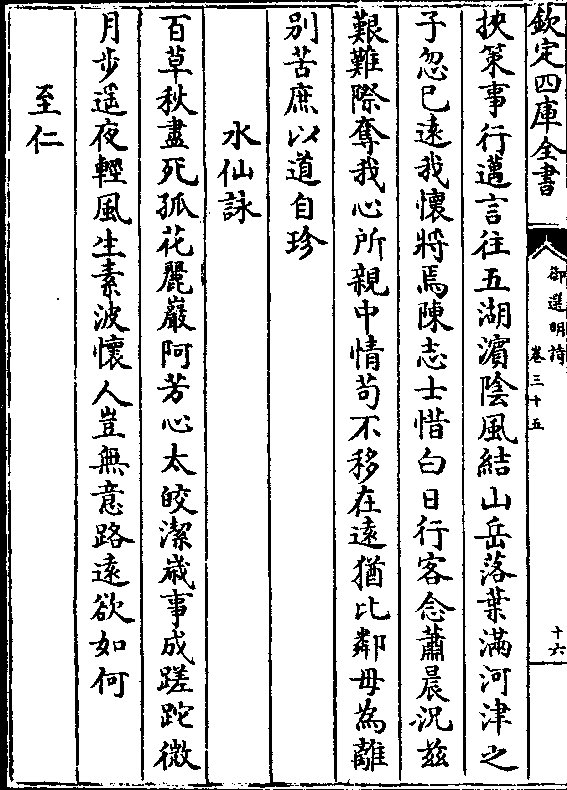 欽定四庫全書
御選明詩
卷三十五
十六
挾策事行邁言往五湖濵陰風結山岳落葉滿河津之
子忽已遠我懷將焉陳志士惜白日行客念蕭晨況兹
艱難際奪我心所親中情茍不移在遠猶比鄰毋為離
别苦庶以道自珍
水仙詠
百草秋盡死孤花麗巖阿芳心太皎潔嵗事成蹉跎微
月步遥夜輕風生素波懷人豈無意路遠欲如何
至仁